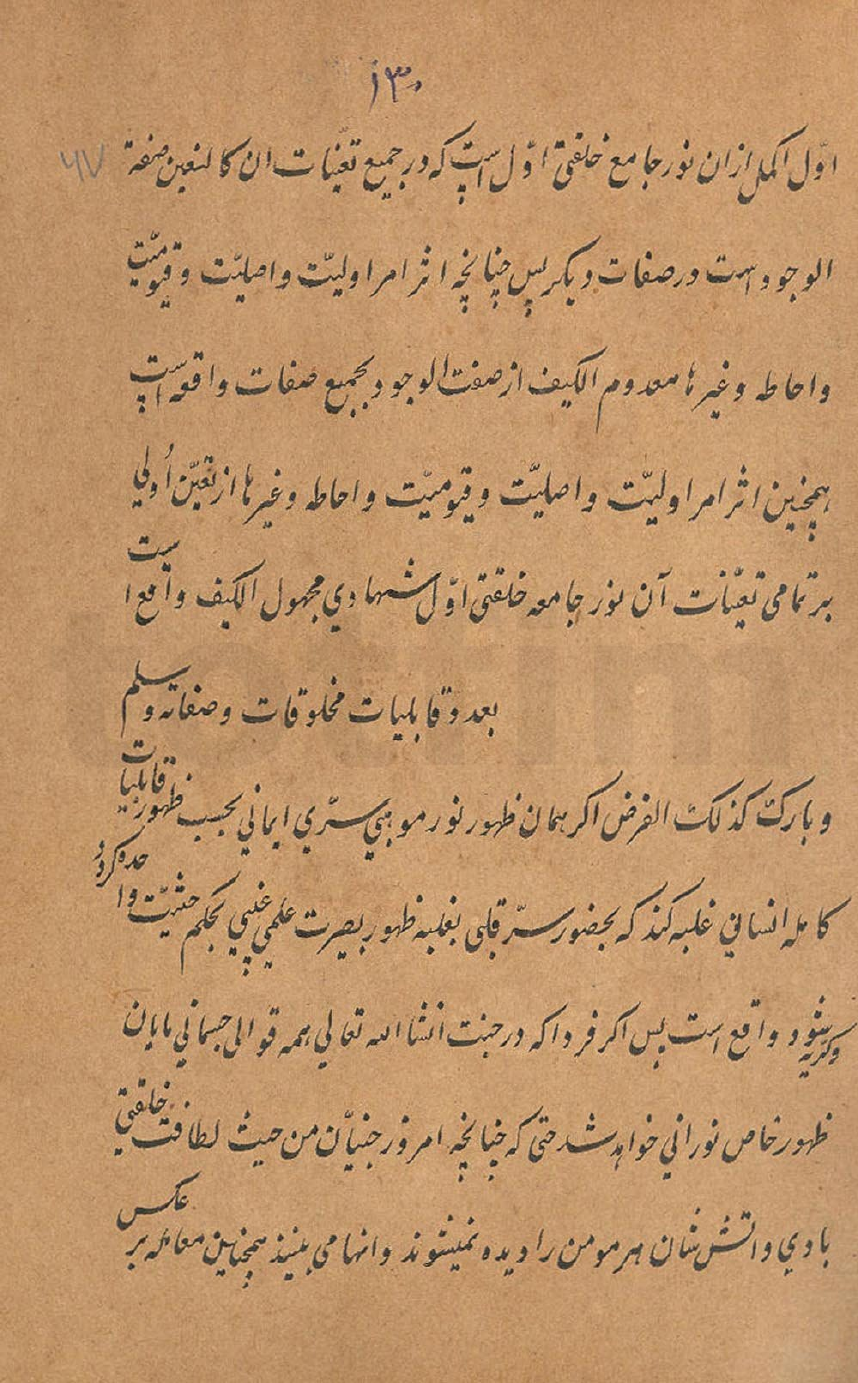 ۱۳۰
۶۷
اوّل اکمل ازان نور جامع خلقتی اوّل است که در جمیع تعیّنات ان کالتعین صفة
الوجود است در صفات دیکر پس چنانچه اثر امر اولیّت واصلیّت وقیّومیّت
واحاطه وغیرها معدوم الکیف از صفت الوجود بجمیع صفات واقعه است
همچنین اثر امر اولیّت واصلیّت وقیومیّت واحاطه وغیرها از تعیّن اُولی
بر تمامی تعیّنات آن نور جامعه خلقتی اوّل شهادی مجهول الکیف واقع است
بعدد قابلیات مخلوقات وصفاته وسلم
وبارك کذلك الغرض اکر همان ظهور نور موهبی سرّی ایمانی بحسب ظهور قابلیات
کامله انسانی غلبه کند که بحضور سرّ قلبی بغلبه ظهور بصیرت علمی غیبی بحکم حیثیّت وا
وکرنه شود واقع است پس اکر فردا که در جنت انشا الله تعالی همه قوالی جسمانی مایان
ظهور خاص نورانی خواهد شد حتی که چنانچه امروز جنیّان من حیث لطافت خلقتی
بادی واتش شان هر مومن را دیده نمیشوند وانها می بینند همچنین معامله بر عکس